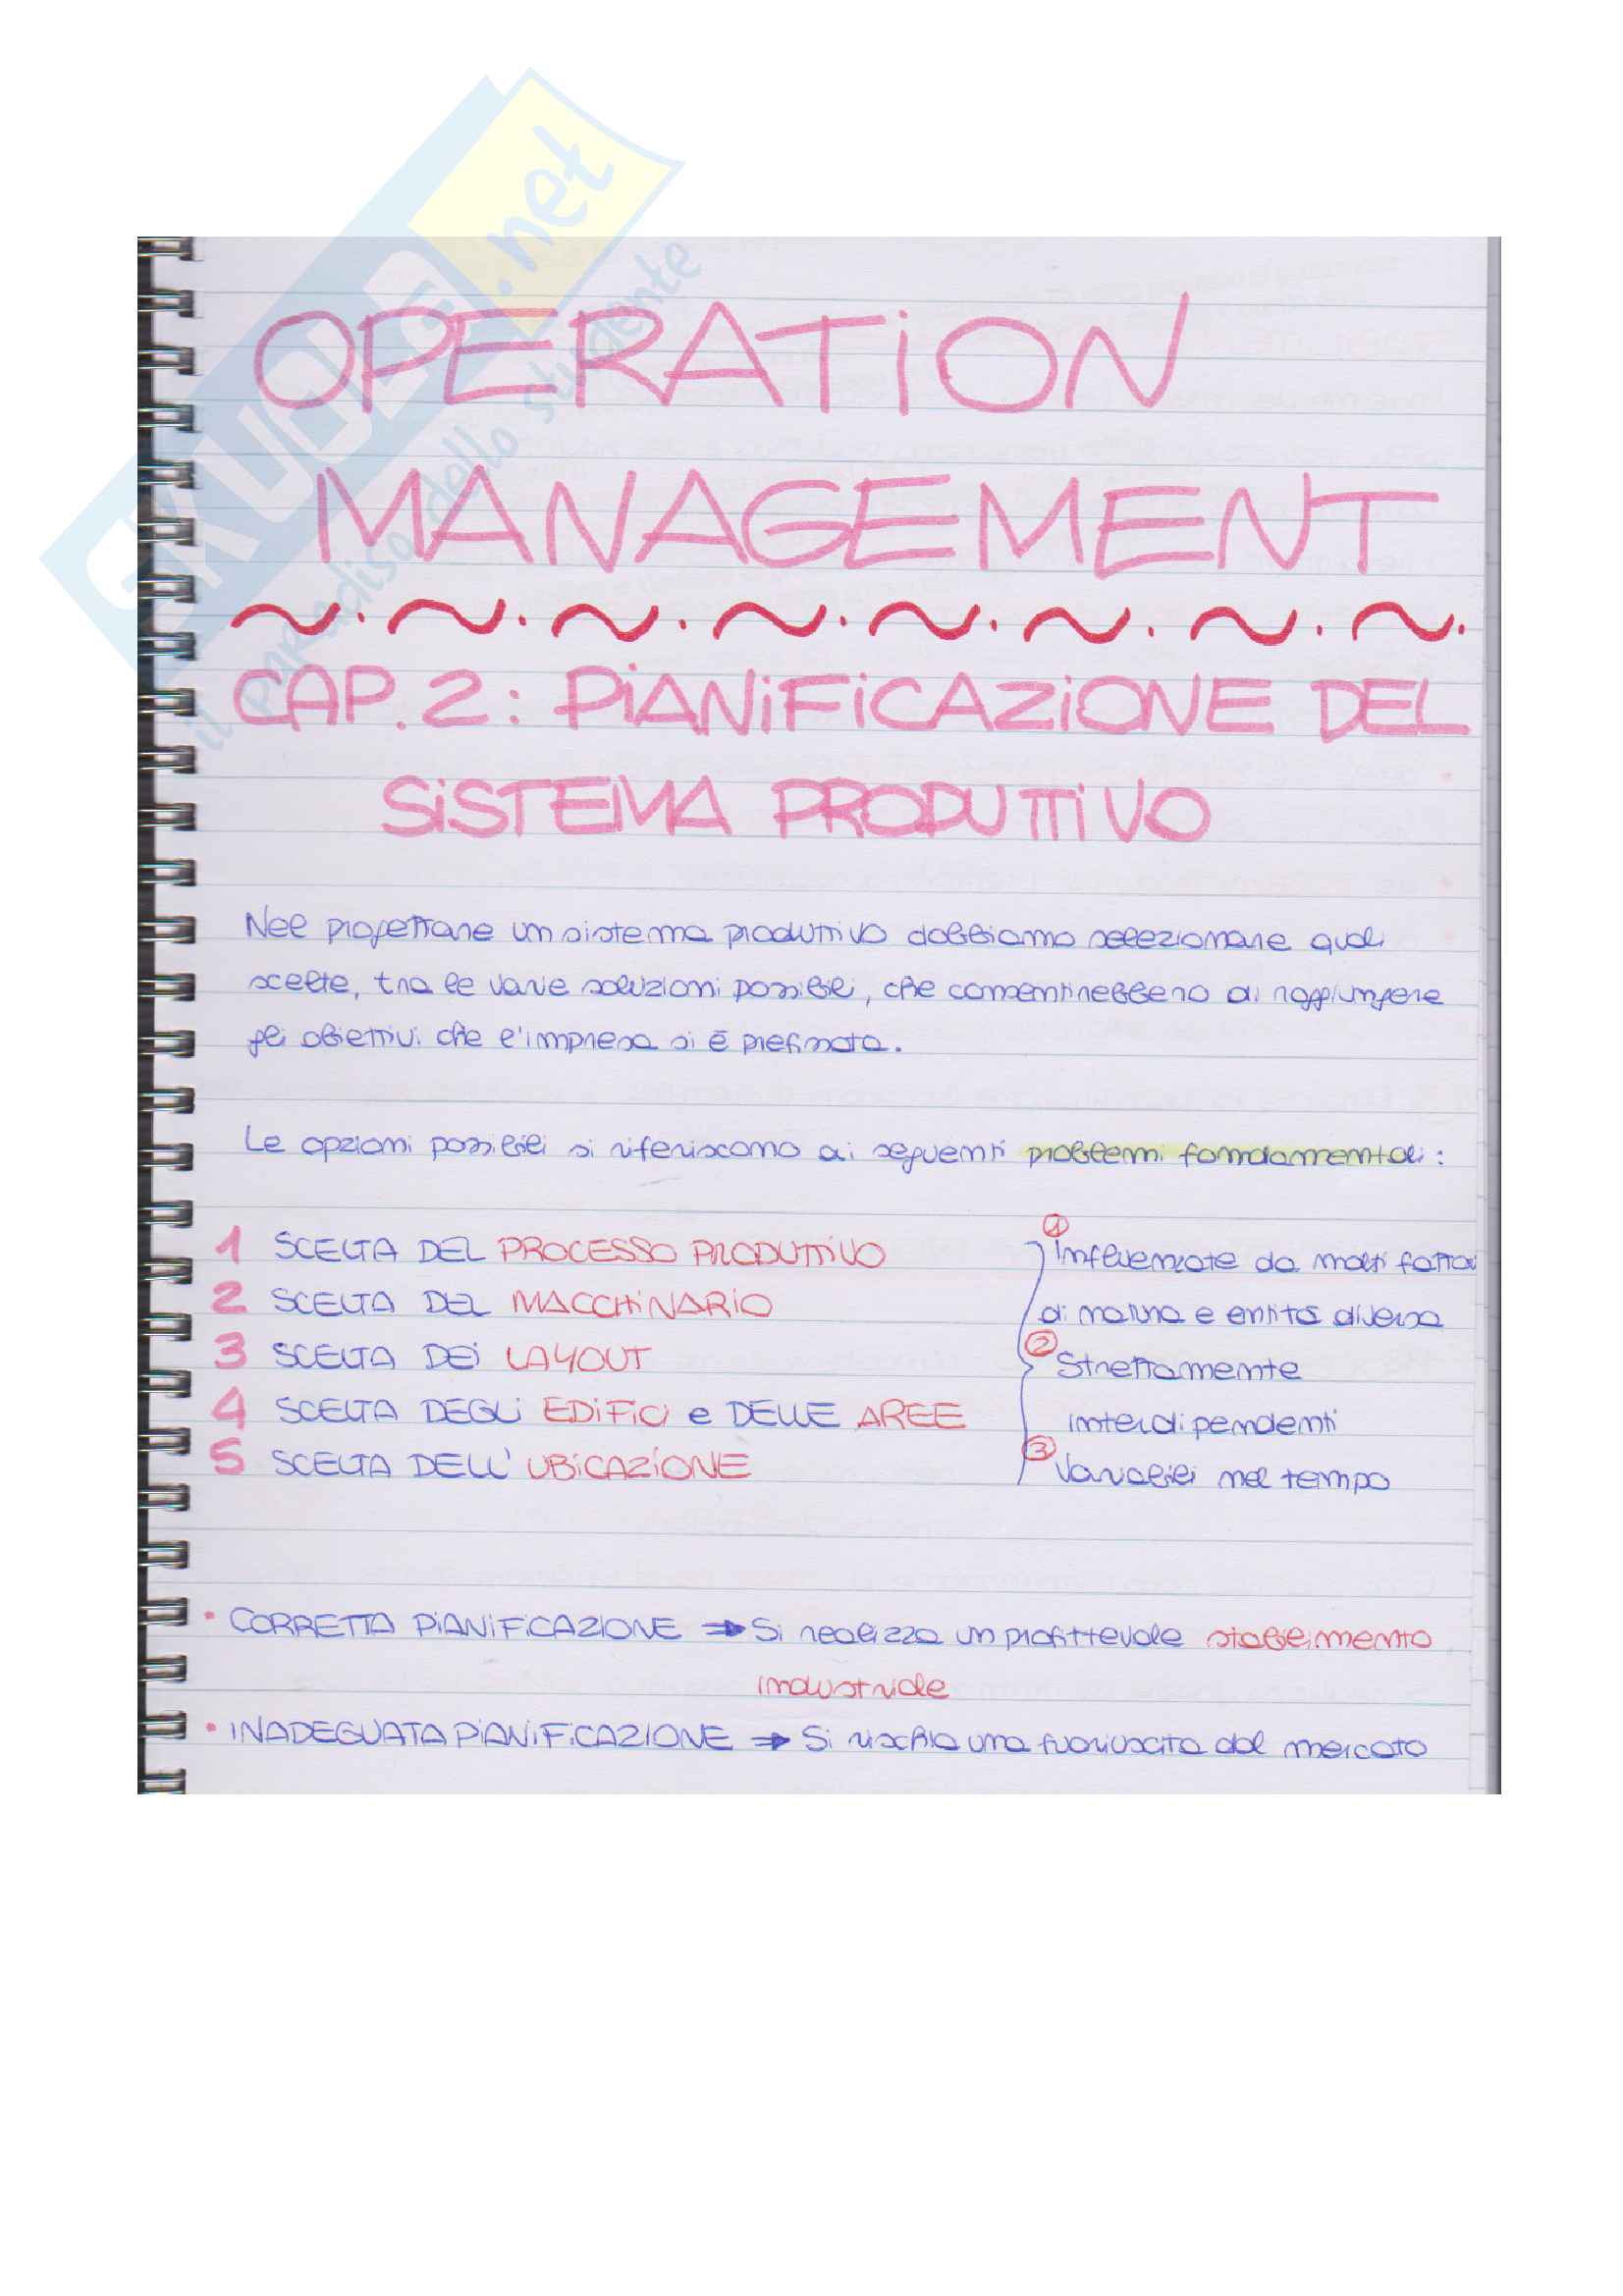 SKUOLA.net
il paradiso dello studente
OPERATION
MANAGEMENT
CAP. 2: PIANIFICAZIONE DEL
SISTEMA PRODUTTIVO
Nel progettare un sistema produttivo dobbiamo selezionare quali
scelte, tra le varie soluzioni possibili, che consentirebbero di raggiungere
gli obiettivi che l'impresa si è prefissata.
Le opzioni possibili si riferiscono ai seguenti problemi fondamentali:
1 SCELTA DEL PROCESSO PRODUTTIVO
2 SCELTA DEL MACCHINARIO
3 SCELTA DEI LAYOUT
4 SCELTA DEGLI EDIFICI e DELLE AREE
5 SCELTA DELL'UBICAZIONE
1 Influenzate da molti fattori
di natura e entità diversa
2 Strettamente
interdipendenti
3 Variabili nel tempo
• CORRETTA PIANIFICAZIONE ⇒ Si realizza un profittevole stabilimento
industriale
• INADEGUATA PIANIFICAZIONE ⇒ Si rischia una fuoriuscita dal mercato